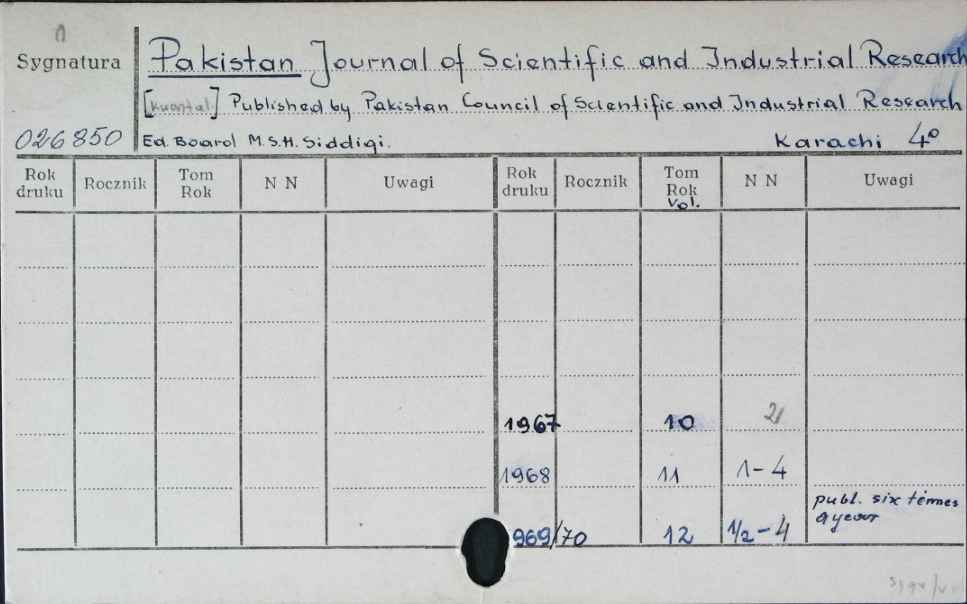 Sygnatura
Pakistan Journal of Scientific and Industrial Research
[kwartal] Published by Pakistan Council of Scientific and Industrial Research
026850 Ed. Board M.S.H. Siddigi. Karachi 4°
Rok druku Rocznik Tom Rok N N Uwagi Rok druku Rocznik Tom Rok Vol. N N Uwagi
1967 10 2
1968 11 1-4
publ. six temes
a year
969/70 12 1/2-4